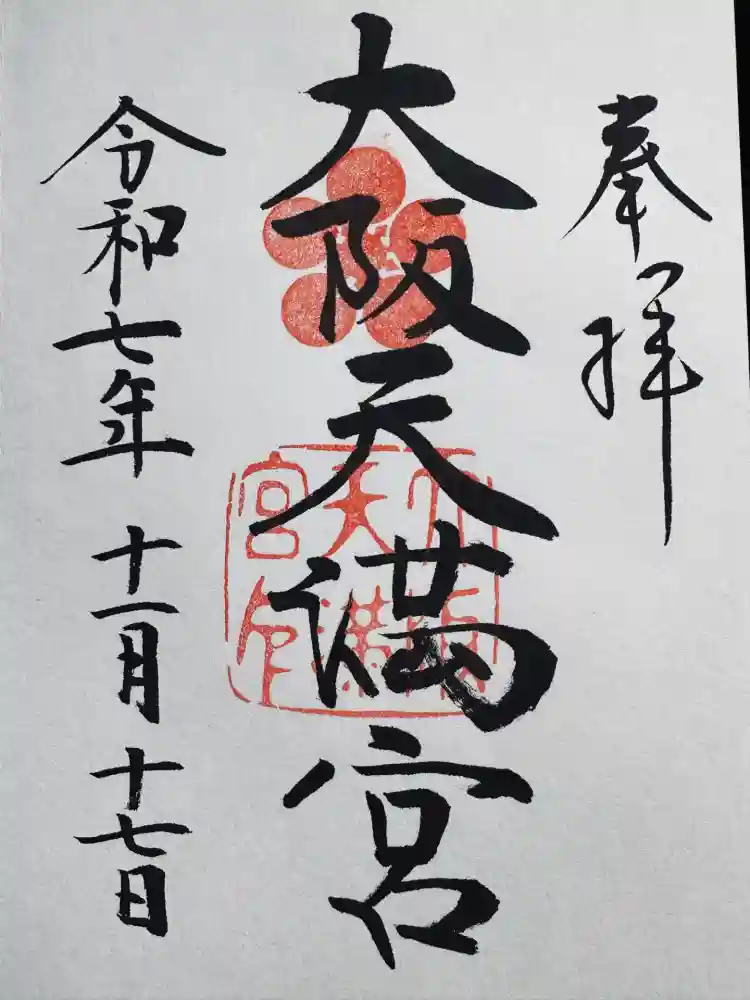 奉拝
大阪天満宮
大阪天満宮印
令和七年十一月十七日